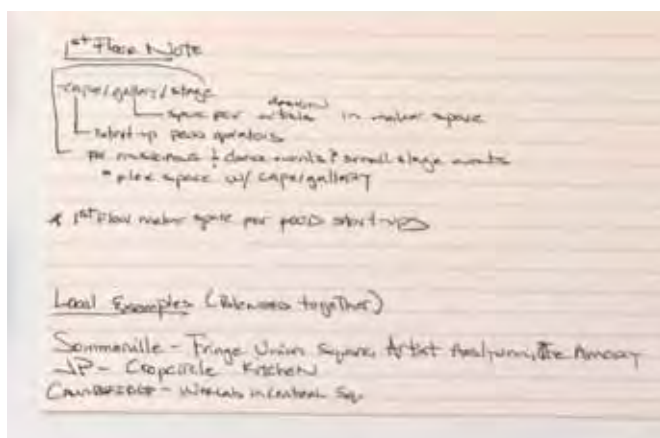 1st Floor Note
cafe/gallery/stage
space for artists in maker space
start-up food operators
for musicians & dance events? small stage events
* flex space w/ cafe/gallery
* 1st Floor maker space for food start-ups
Local Examples (together)
Sommerville - Fringe Union Square, Artist Asylum, the Armory
JP - Cropcircle Kitchen
CAMBRIDGE - in Central Sq.